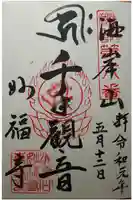 海岸山
令和元年
五月十二日
千手観音
妙福寺